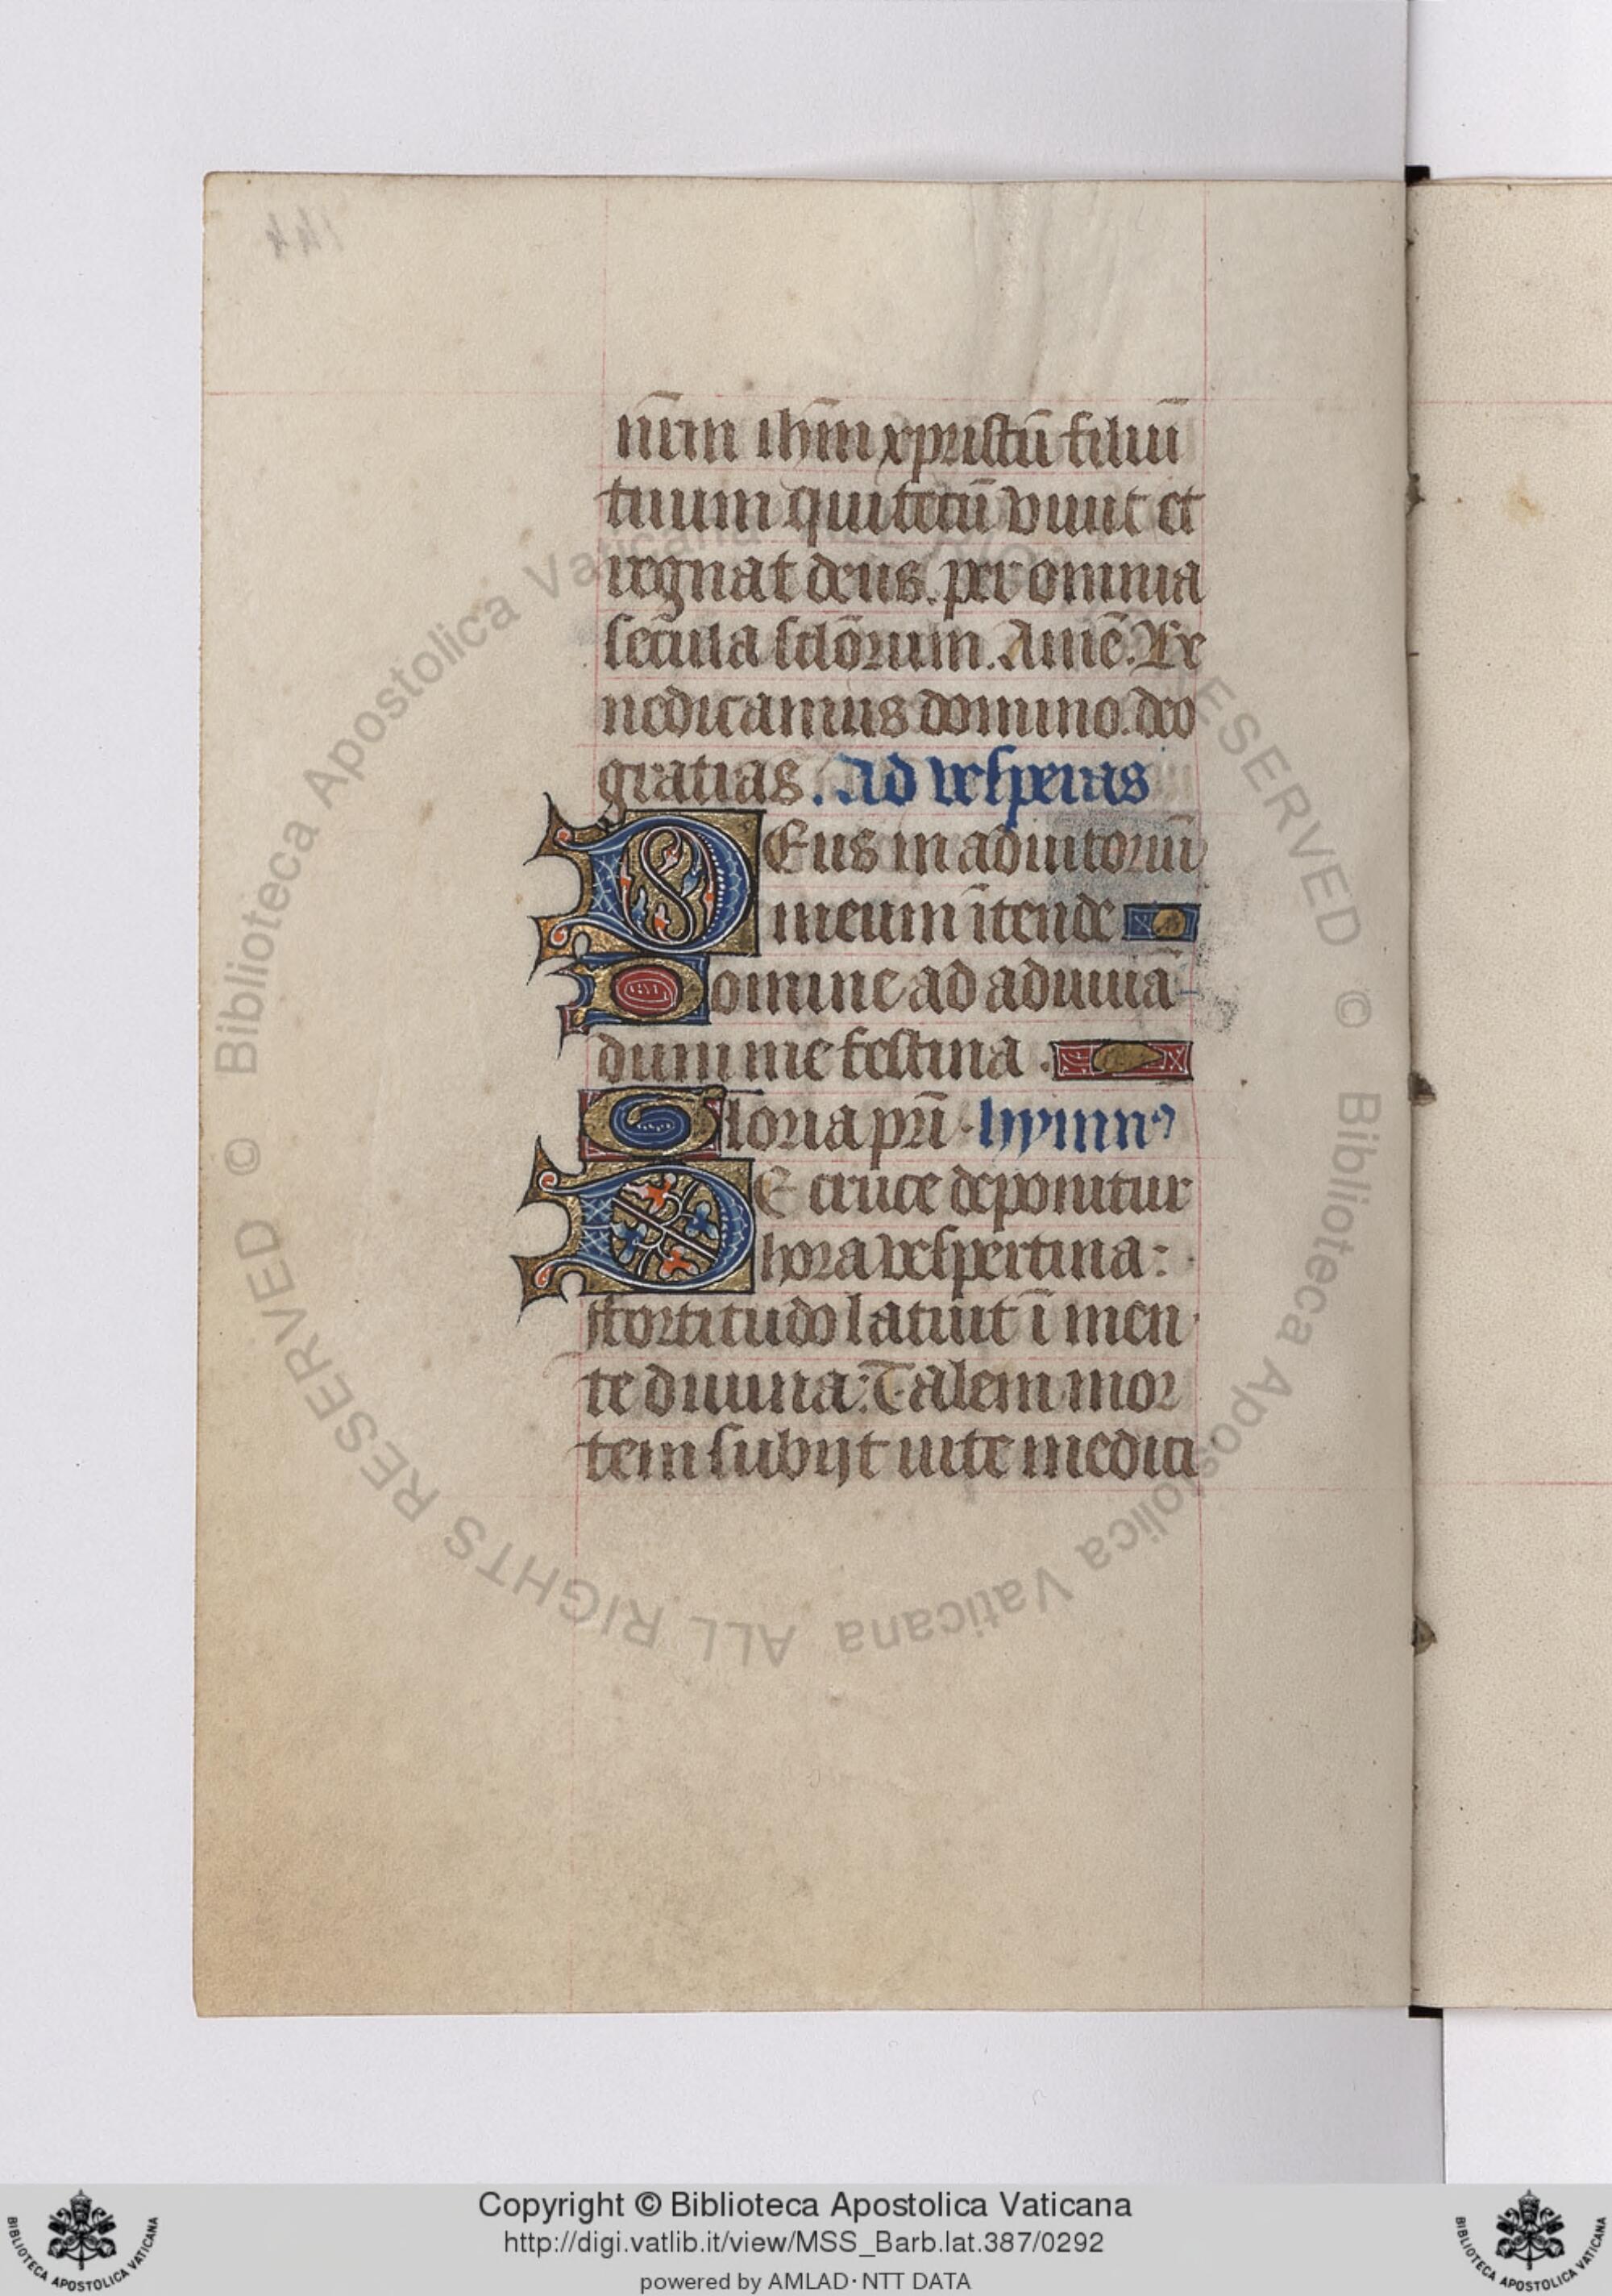 nr̄m ih̄m xpristū filiū
tuum qui tecū viuit et
regnat deus. per omnia
secula sclōrum. Amē. Be
nedicamus domino. deo
gratias. Ad vesperas
DEus in adiutoriū
meum ītende
Domine ad adiuuā-
dum me festina.
Gloria pr̄i. hymnꝰ
DE cruce deponitur
hora vespertina:
ffortitudo latuit ī men
te diuina: Talem mor
tem subijt uite medici
144
© Biblioteca Apostolica Vaticana ALL RIGHTS RESERVED © Biblioteca Apostolica Vaticana ALL RIGHTS RESERVED
Copyright © Biblioteca Apostolica Vaticana
http://digi.vatlib.it/view/MSS_Barb.lat.387/0292
powered by AMLAD·NTT DATA
BIBLIOTECA APOSTOLICA VATICANA
BIBLIOTECA APOSTOLICA VATICANA